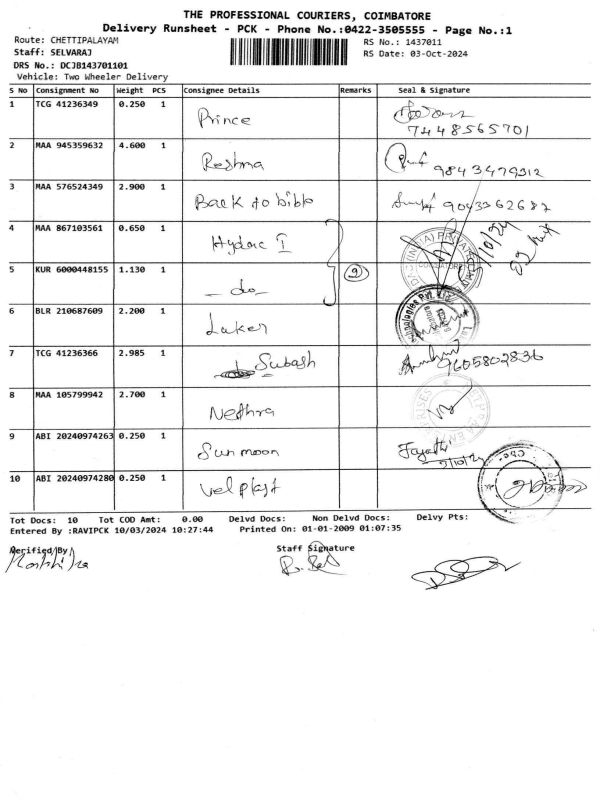 THE PROFESSIONAL COURIERS, COIMBATORE
Delivery Runsheet - PCK - Phone No.:0422-3505555 - Page No.:1
Route: CHETTIPALAYAM RS No.: 1437011
Staff: SELVARAJ RS Date: 03-Oct-2024
DRS No.: DCJB143701101
Vehicle: Two Wheeler Delivery
S No Consignment No Weight PCS Consignee Details Remarks Seal & Signature
1 TCG 41236349 0.250 1 Prince
7448565701
2 MAA 945359632 4.600 1 Reshma 9843479312
3 MAA 576524349 2.900 1 Back to bible 9043362687
4 MAA 867103561 0.650 1 Hydac I
5 KUR 6000448155 1.130 1 - do - 9
6 BLR 210687609 2.200 1 Laker
7 TCG 41236366 2.985 1 Subash 9605802836
8 MAA 105799942 2.700 1 Nethra
9 ABI 20240974263 0.250 1 Sun moon
10 ABI 20240974280 0.250 1 Vel plast
Tot Docs: 10 Tot COD Amt: 0.00 Delvd Docs: Non Delvd Docs: Delvy Pts:
Entered By :RAVIPCK 10/03/2024 10:27:44 Printed On: 01-01-2009 01:07:35
Verified By Staff Signature